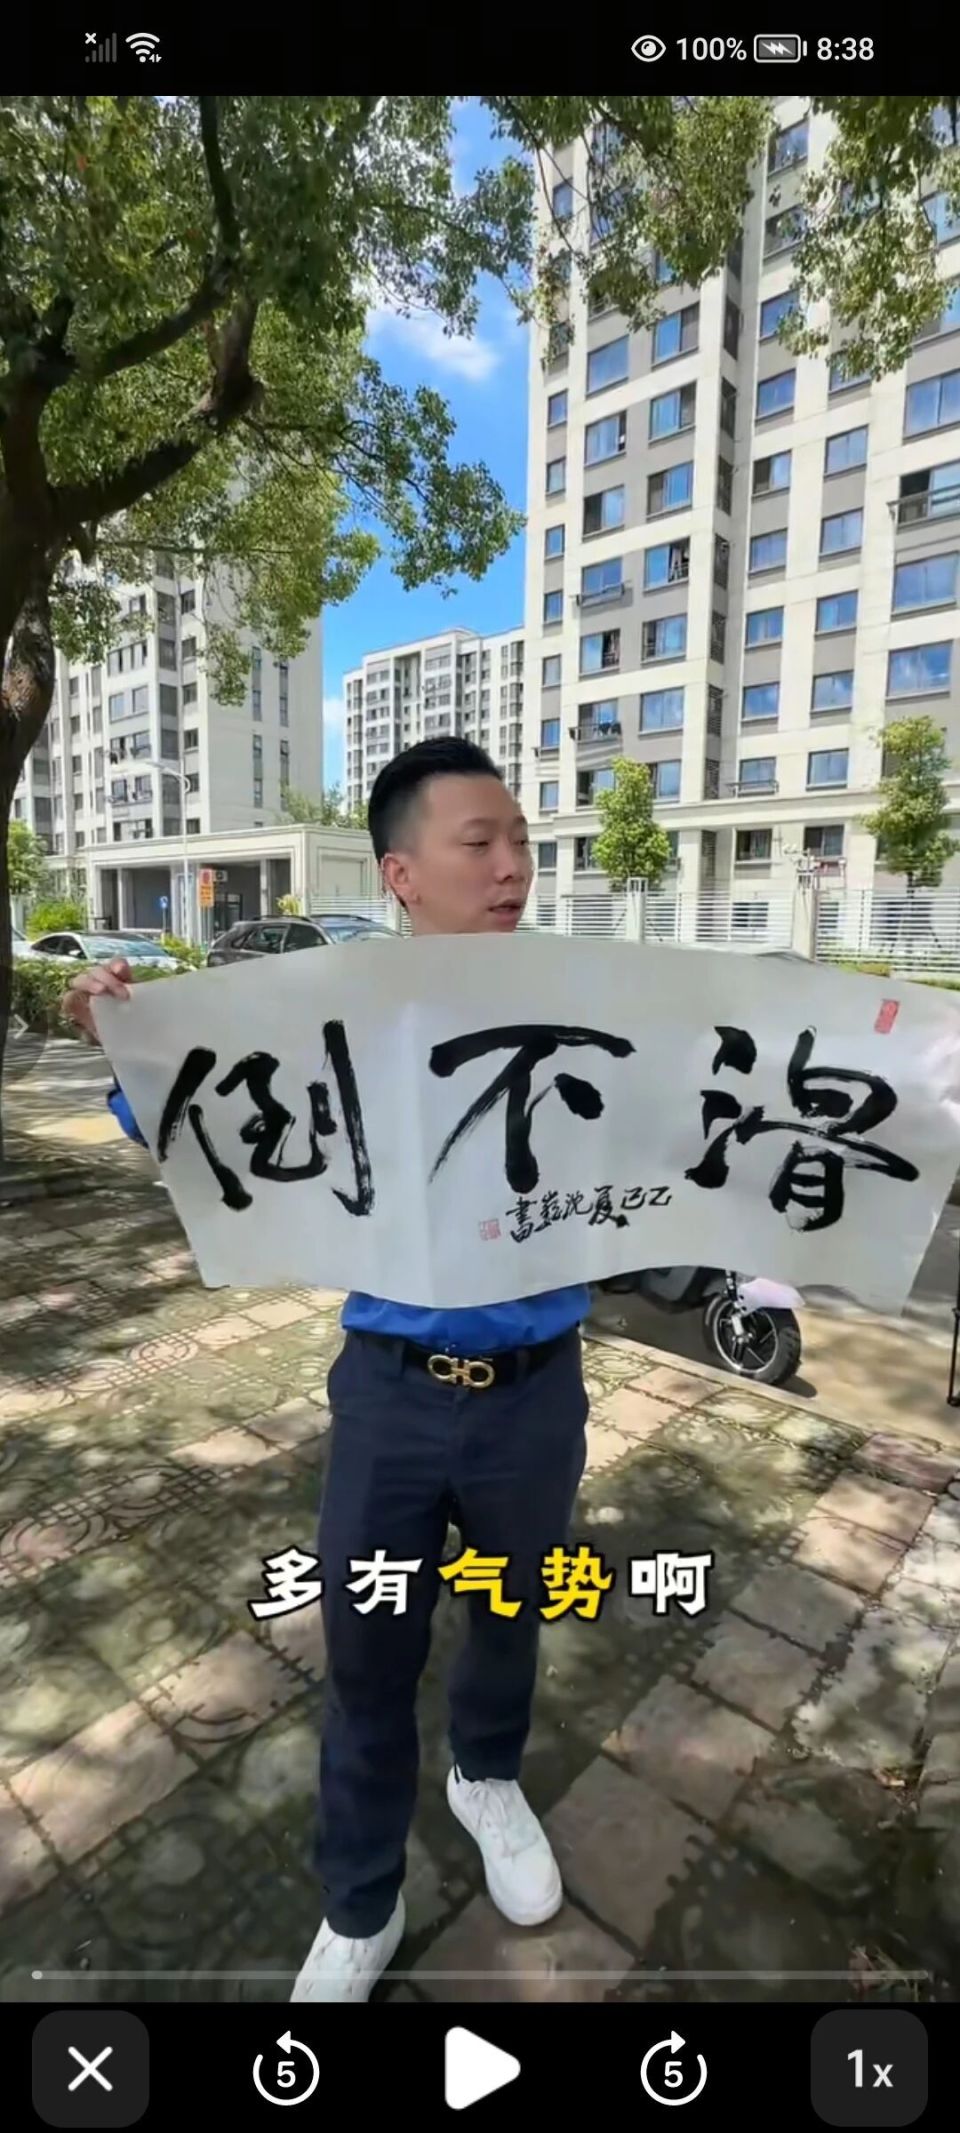 100% 8:38
滑不倒
乙巳夏沈嶽書
多有气势啊
5 5 1x